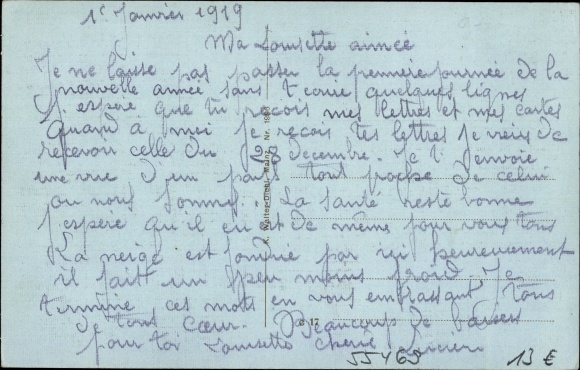 1e Janvier 1919
Ma Louisette aimée
Je ne laisse pas passer la première journée de la
nouvelle année sans t'écrire quelques lignes
J'espère que tu reçois mes lettres et mes cartes
Quand à moi je reçois tes lettres je viens de
recevoir celle du 23 décembre. Je t'envoie
une vue d'un pays tout proche de celui
ou nous sommes. La santé reste bonne
j'espère qu'il en est de même pour vous tous
La neige est tombée par ici heureusement
il fait un peu moins froid. Je
termine ces mots en vous embrassant tous
de tout cœur. Beaucoup de baisers
pour toi Louisette chérie
55469 13 €